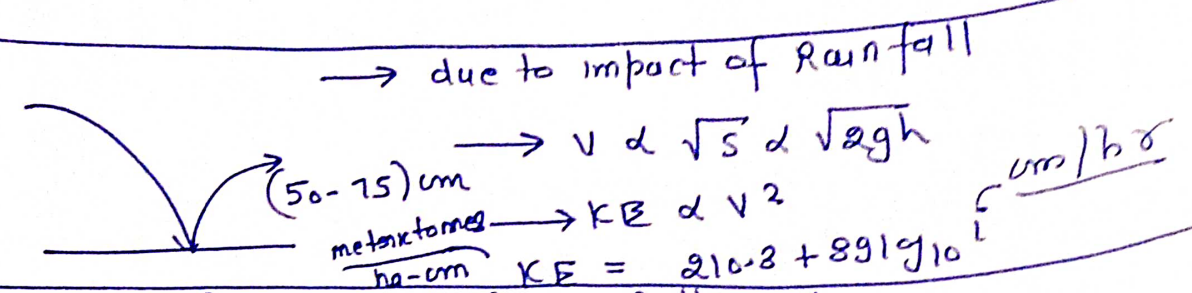 → due to impact of Rainfall
→ V α √s α √2gh
(50-75) cm
cm/hr
→ KE α V²
metric tonnes
ha-cm
KE = 210.3 + 89 log₁₀ i